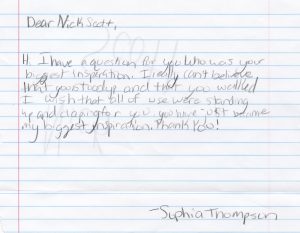 Dear Nick Scott,
Hi I have a question for you who was your
biggest inspiration. I really can't believe
that you stood up and that you walked
I wish that all of use were standing
up and claping for you. you have just become
my biggest inspiration. Thank You!
-Sophia Thompson